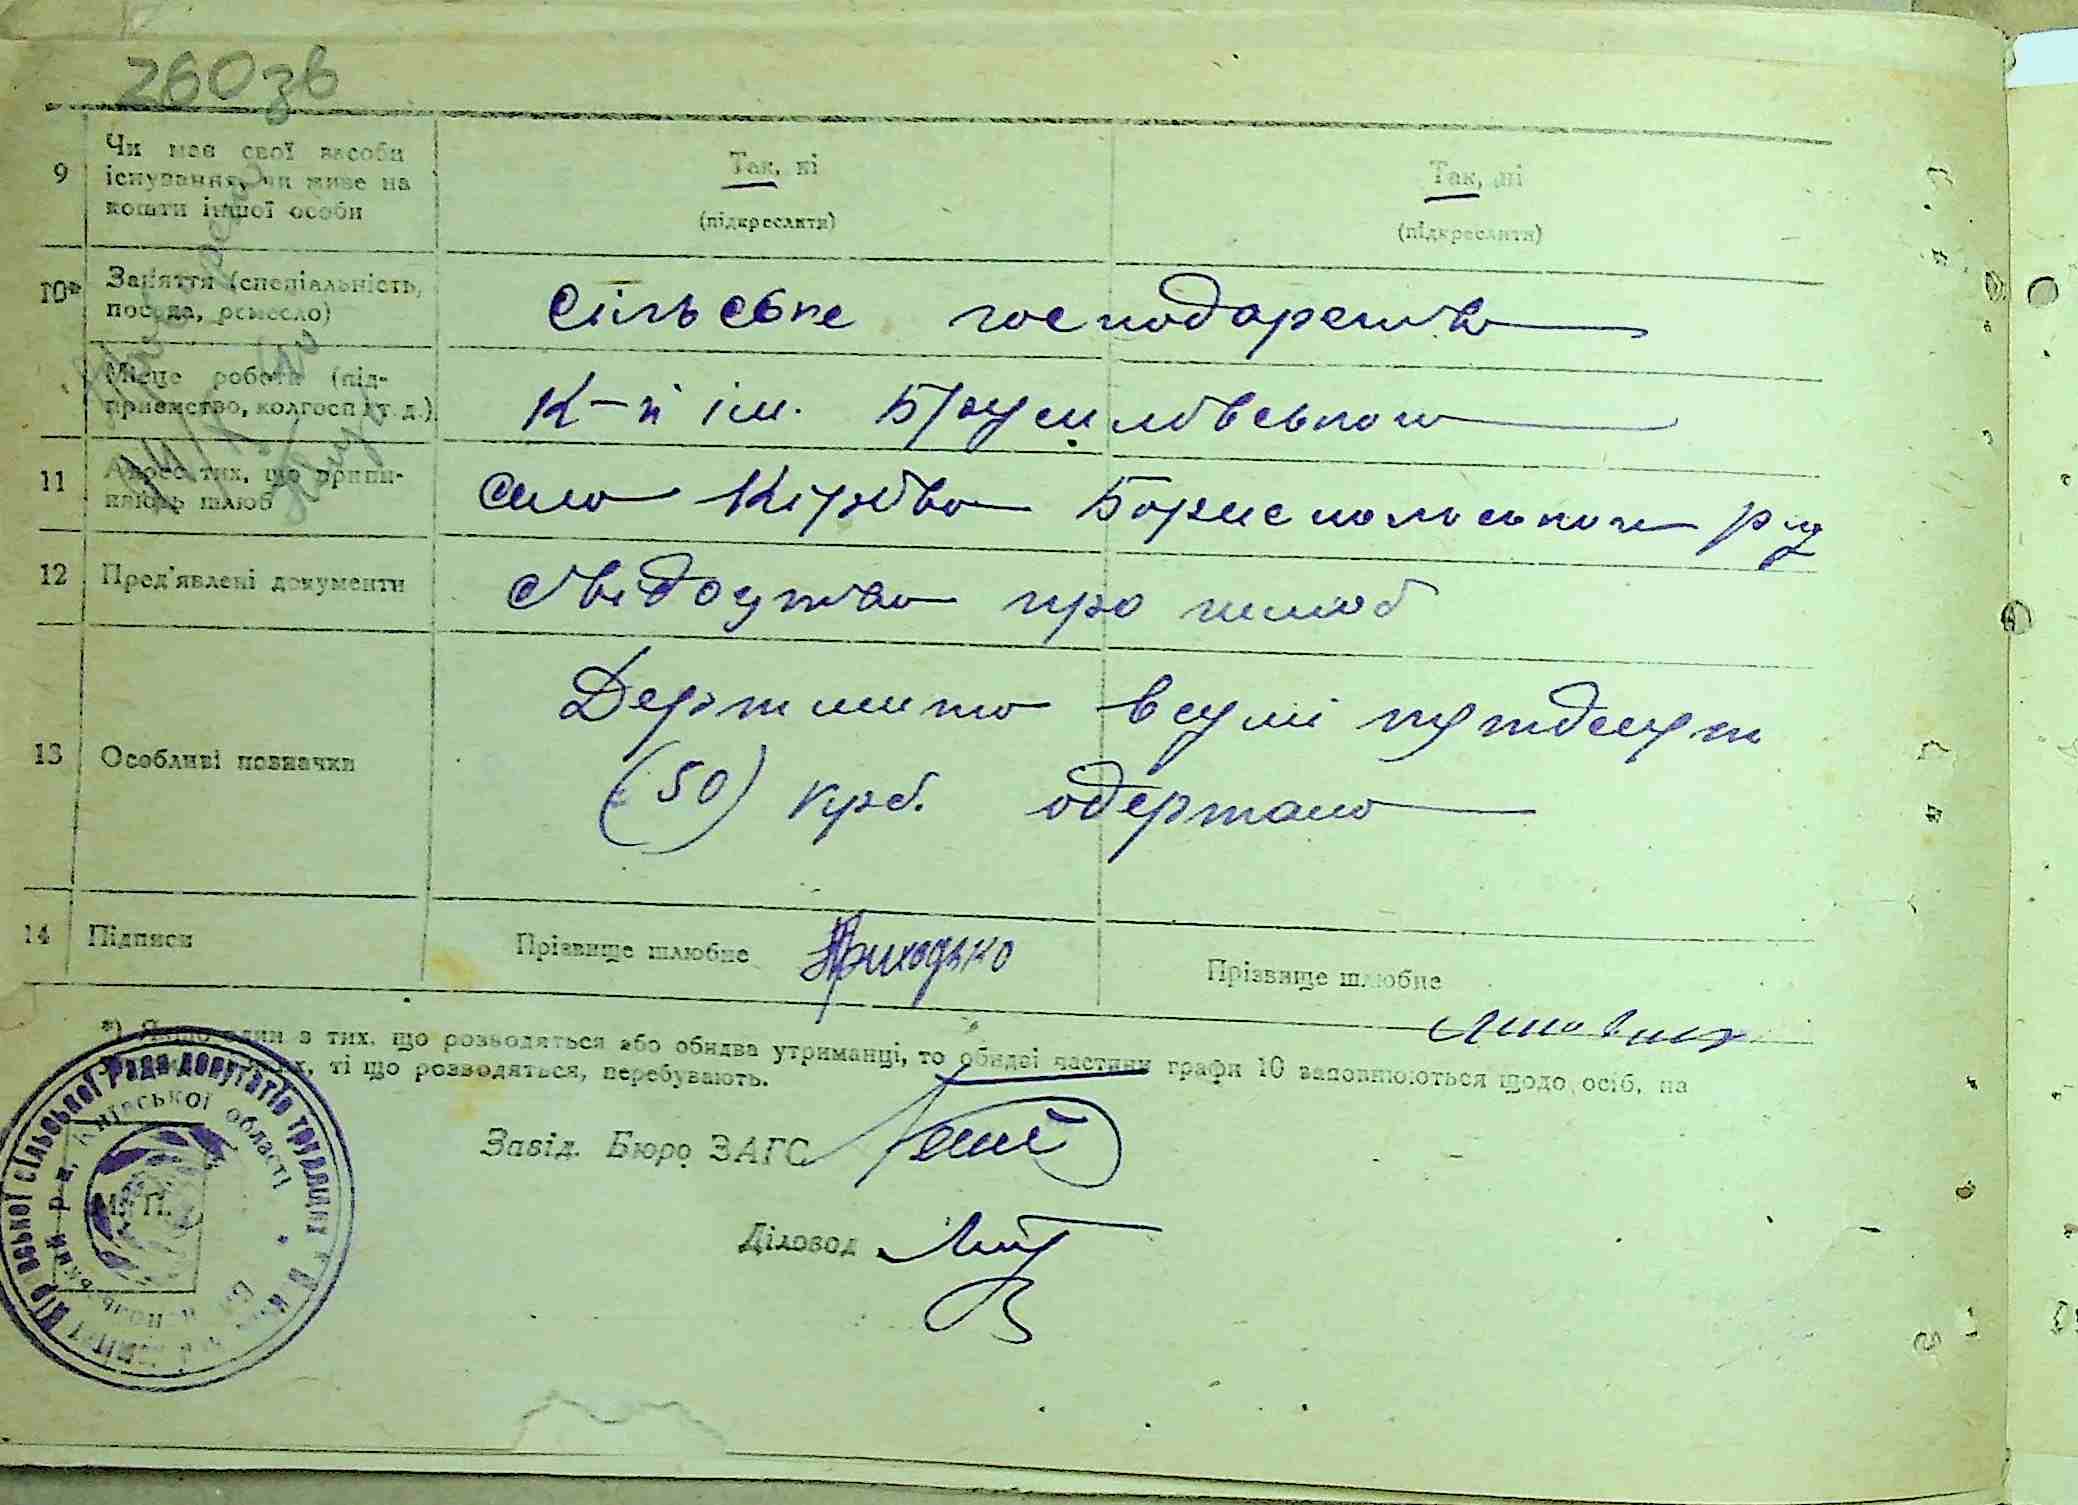 260зв
9 Чи має свої засоби існування, чи живе на кошти іншої особи
Так, ні
(підкреслити)
Так, ні
(підкреслити)
10* Заняття (спеціальність, посада, ремесло)
Сільське господарство
Місце роботи (підприємство, колгосп і т. д.)
К-п ім. Брусиловського
11 Адреса тих, що припиняють шлюб
село Кірово Бориспольського р-ну
12 Пред'явлені документи
свідоцтво про шлюб
13 Особливі позначки
Держмито в сумі пятдесят
(50) крб. одержано
14 Підписи
Прізвище шлюбне Приходько
Прізвище шлюбне
*) Якщо один з тих, що розводяться або обидва утриманці, то обидві частини графи 10 заповнюються щодо осіб, на
ті що розводяться, перебувають.
Завід. Бюро ЗАГС
Діловод
М. П.
сільської Ради депутатів трудящих
Київської області